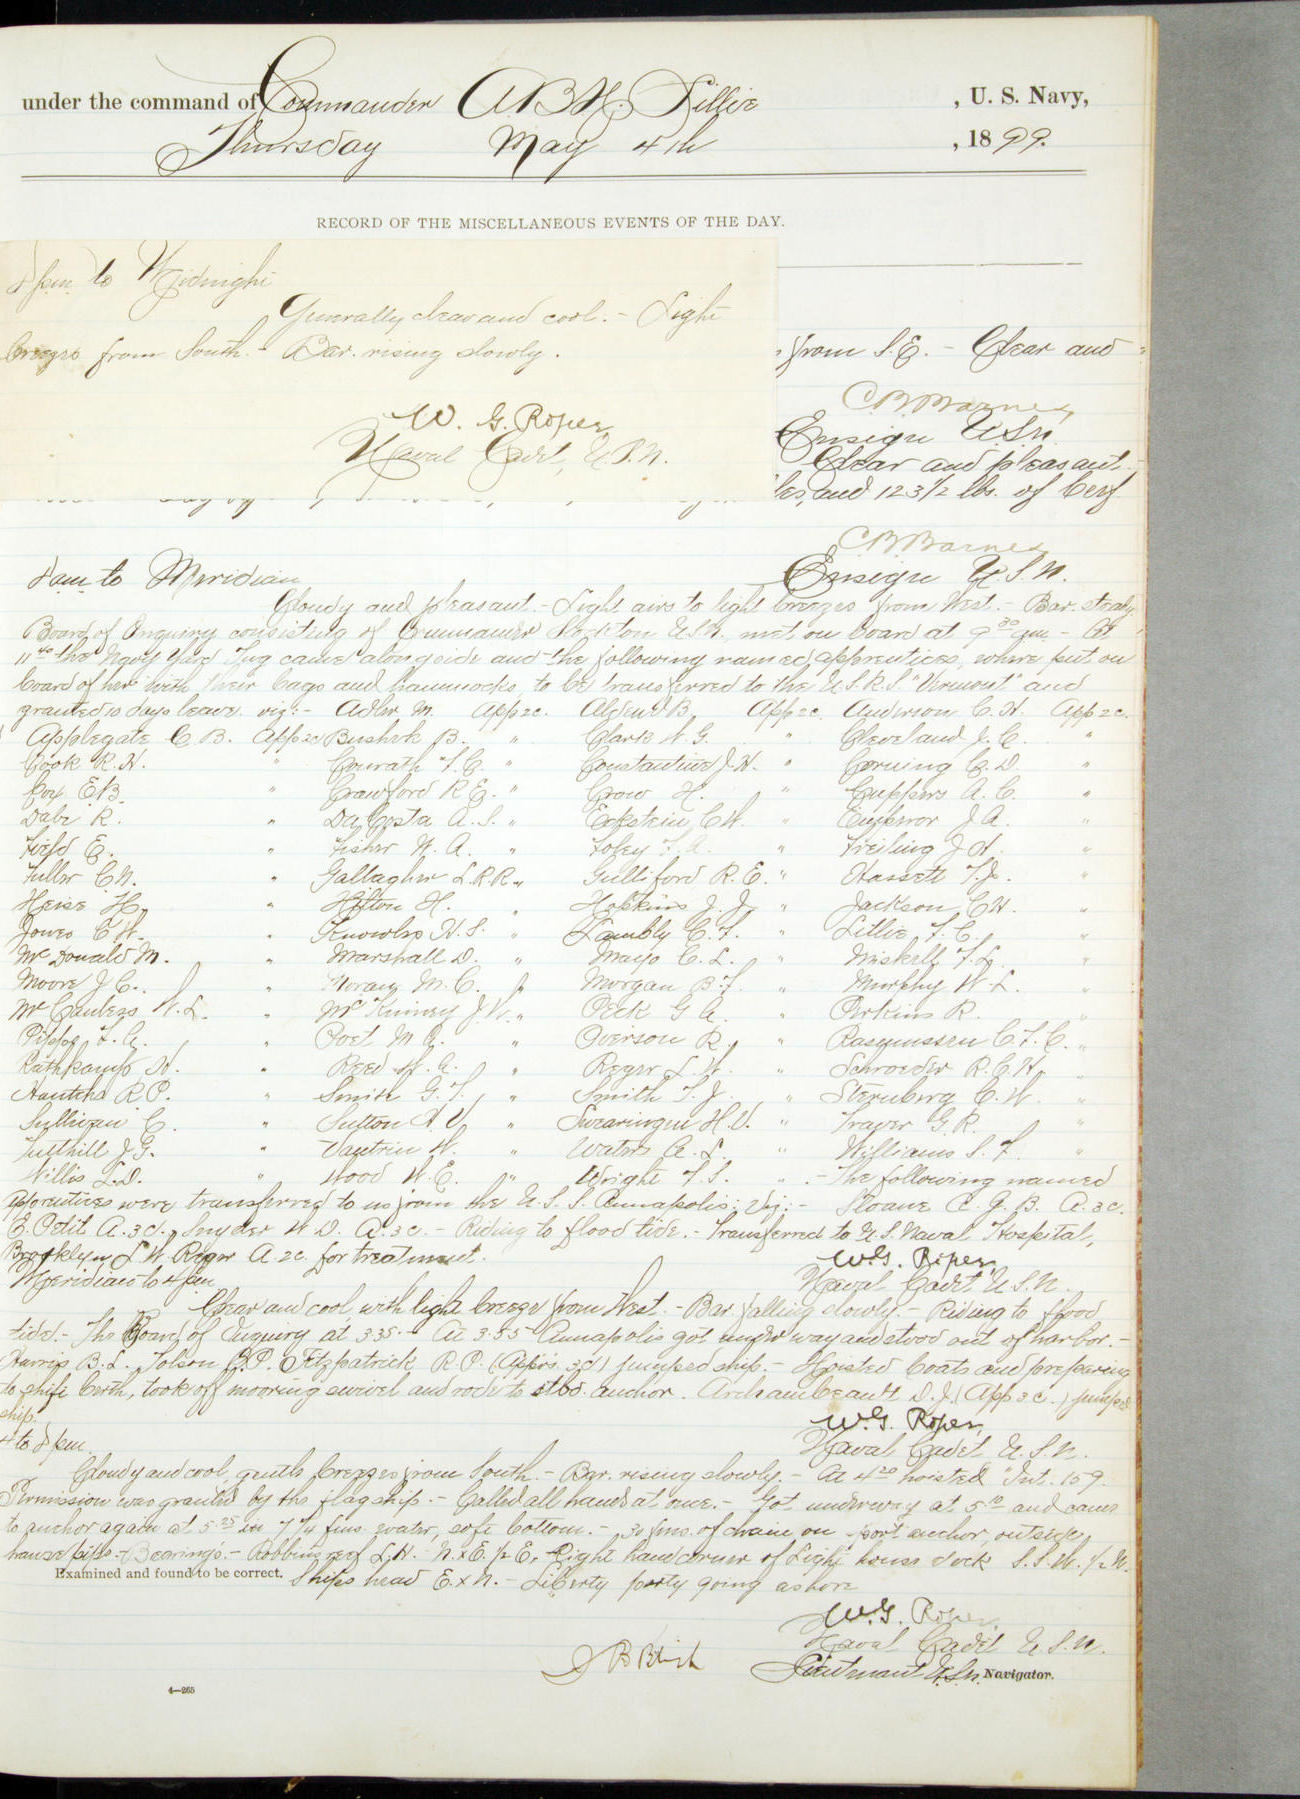 under the command of Commander A.B.H. Lillie , U. S. Navy,
Thursday May 4th , 1899.
RECORD OF THE MISCELLANEOUS EVENTS OF THE DAY.
8 pm to Midnight
Generally clear and cool. - Light
breezes from South. - Bar. rising slowly.
W. G. Roper,
Naval Cadet, U.S.N.
from S.E. - Clear and
C B Barnes,
Ensign U.S.N.
Clear and pleasant
and 123 1/2 lbs. of beef
C B Barnes
8 am to Meridian Ensign U.S.N.
Cloudy and pleasant. - Light airs to light breezes from West. - Bar. steady
Board of Enquiry consisting of Commander U.S.N. met on board at 9 30 am - At
11 40 the Navy Yard Tug came alongside and the following named apprentices, where put on
board of her with their bags and hammocks, to be transferred to the U.S.R.S. "Vermont" and
granted 10 days leave. viz:- Adler M. App 2c. Alsend B. App 2c. Anderson C. H. App 2c.
Applegate C. B. App 2c Bushek B. " Clark W. G. " Cleveland J. C. "
Cook R. H. " Conrath F. C. " Constantine J. H. " Corning C. D. "
Cox E.B. " Crawford R E. " Crow H. " Cuppers A. C. "
Dabe R. " Da Costa A. S. " Eckstein C W. " Emperor J. A. "
Field E. " Fisher W. A. " Foley F. A. " Freiling J. H. "
Fuller C. N. " Gallagher L.R.R. " Gulliford R. E. " Hassett T. J. "
Heise H. " Hilton H. " Hopkins J. J. " Jackson C H. "
Jones C. W. " Knowles H. S. " Lambly C. F. " Lillie F. C. "
McDonald M. " Marshall D. " Mayo C. L. " Miskell F. L. "
Moore J. C. " Moran M. C. " Morgan B. F. " Murphy W. L. "
W. L. " McKinney J. W. " Peck G A. " Perkins R. "
F. A. " Poet M. C. " Overson R. " Rasmussen C. F. C. "
Rathkamp H. " Reed H. A. " Reger L. W. " Schroeder R. C. H. "
R P. " Smith G. F. " Smith T. J. " Sternberg C. W. "
Sullivan C. " Sutton A. V. " Swearingen H. V. " Traver G. R. "
Tuthill J. G. " Vautrin W. " Waters A. L. " Williams S. F. "
Willis L. D. " Wood W. E. " Wright F. S. " - The following named
apprentices were transferred to us from the U. S. S. Annapolis: viz:- Sloane C. G. B. A. 3c.
E. Petit A. 3c., Snyder W. D. A. 3c. - Riding to flood tide. - Transferred to U.S. Naval Hospital,
Brooklyn L. W. Reger A 2c. for treatment.
W.G. Roper,
Meridian to 4 pm Naval Cadet U S.N.
Clear and cool with light breeze from West. - Bar. falling slowly. - Riding to flood
tide. - The Board of Enquiry at 3.35. - At 3.55 Annapolis got under way and stood out of harbor. -
Harris B. L., Tolson B.P. Fitzpatrick R.P. (App's. 3c) jumped ship. - Hoisted boats and preparing
to shift berth, took off mooring swivel and rode to stbd. anchor. Archambeault D. J. (App 3c.) jumped
ship.
W.G. Roper,
4 to 8 pm. Naval Cadet U.S.N.
Cloudy and cool, gentle breezes from South. - Bar. rising slowly. - At 4 20 hoisted Int. 159.
Permission was granted by the flagship. - Called all hands at once. - Got underway at 5 10 and came
to anchor again at 5 25 in 7 1/4 fms. water, soft bottom. - 30 fms. of chain on port anchor, outside
hawse pipe. - Bearings. - Robbins reef L.H. N. x E. 1/2 E. Right hand corner of Light house dock S.S.W. 1/2 W.
Examined and found to be correct. Ships head E. x N. - Liberty party going ashore
W.G. Roper,
Naval Cadet U.S.N.
J B Blish Lieutenant U.S.N. Navigator.
4—265